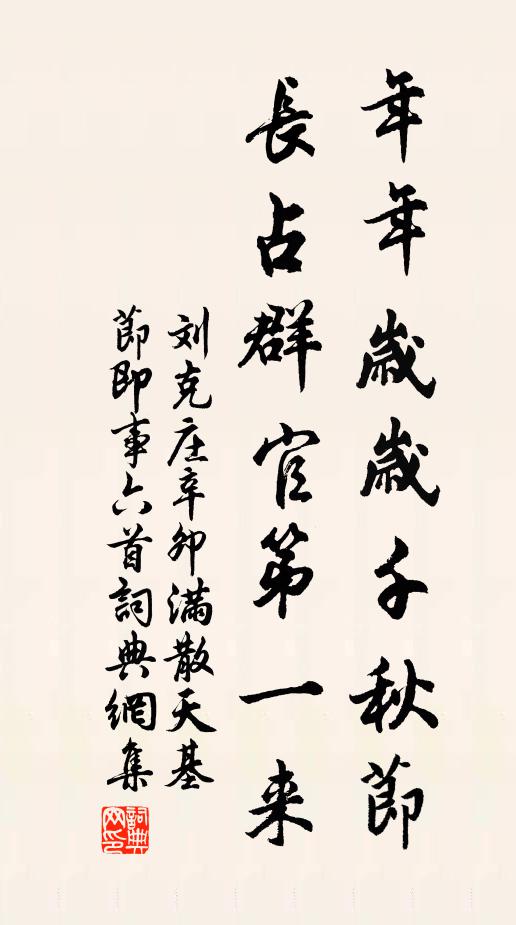 年年歳歳千秋節
長占群官第一来
刘克庄辛卯满散天基
節即事六首詞典網集
詞典網印